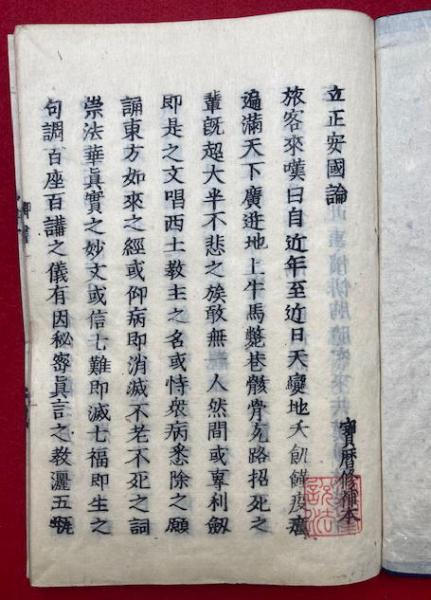 立正安國論
寶曆修補本
旅客來嘆曰自近年至近日天變地夭飢饉疫癘
遍滿天下廣迸地上牛馬斃巷骸骨充路招死之
輩既超大半不悲之族敢無一人然間或專利劔
即是之文唱西土教主之名或恃衆病悉除之願
誦東方如來之經或仰病即消滅不老不死之詞
崇法華眞實之妙文或信七難即滅七福即生之
句調百座百講之儀有因秘密眞言之教灑五瓶